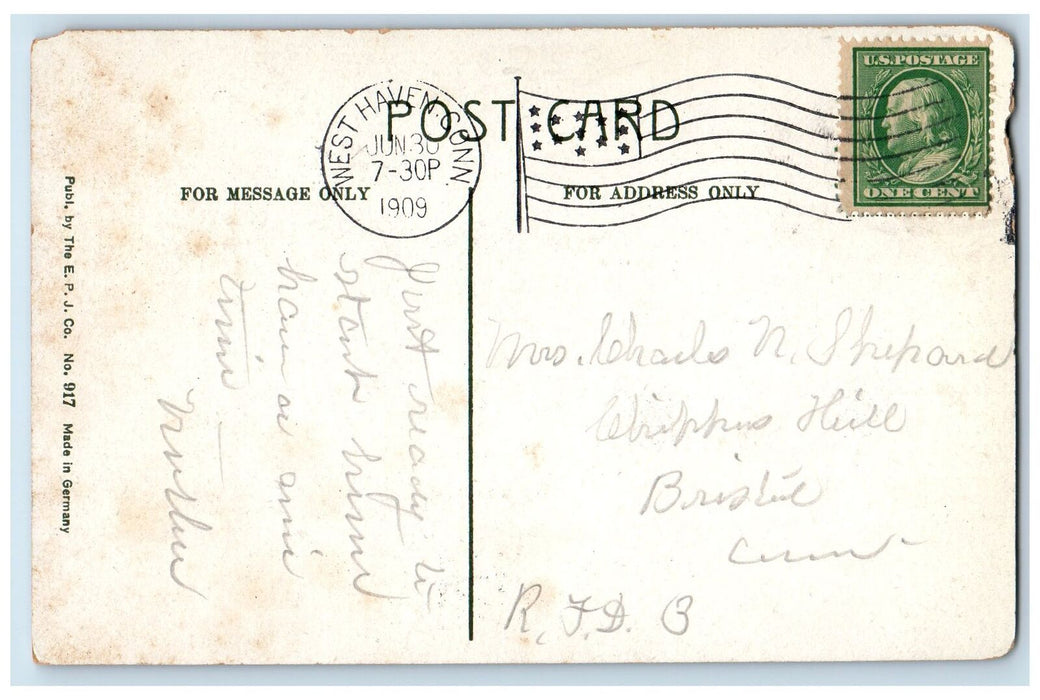 POST CARD
WEST HAVEN, CONN.
JUN 30
7-30P
1909
U.S. POSTAGE
ONE CENT
FOR MESSAGE ONLY
FOR ADDRESS ONLY
Just ready to
start home
have a
time
Mother
Mrs. Charles N. Shepard
Chippins Hill
Bristol
Conn
R. F. D. 3
Publ. by The E. P. J. Co. No. 917 Made in Germany